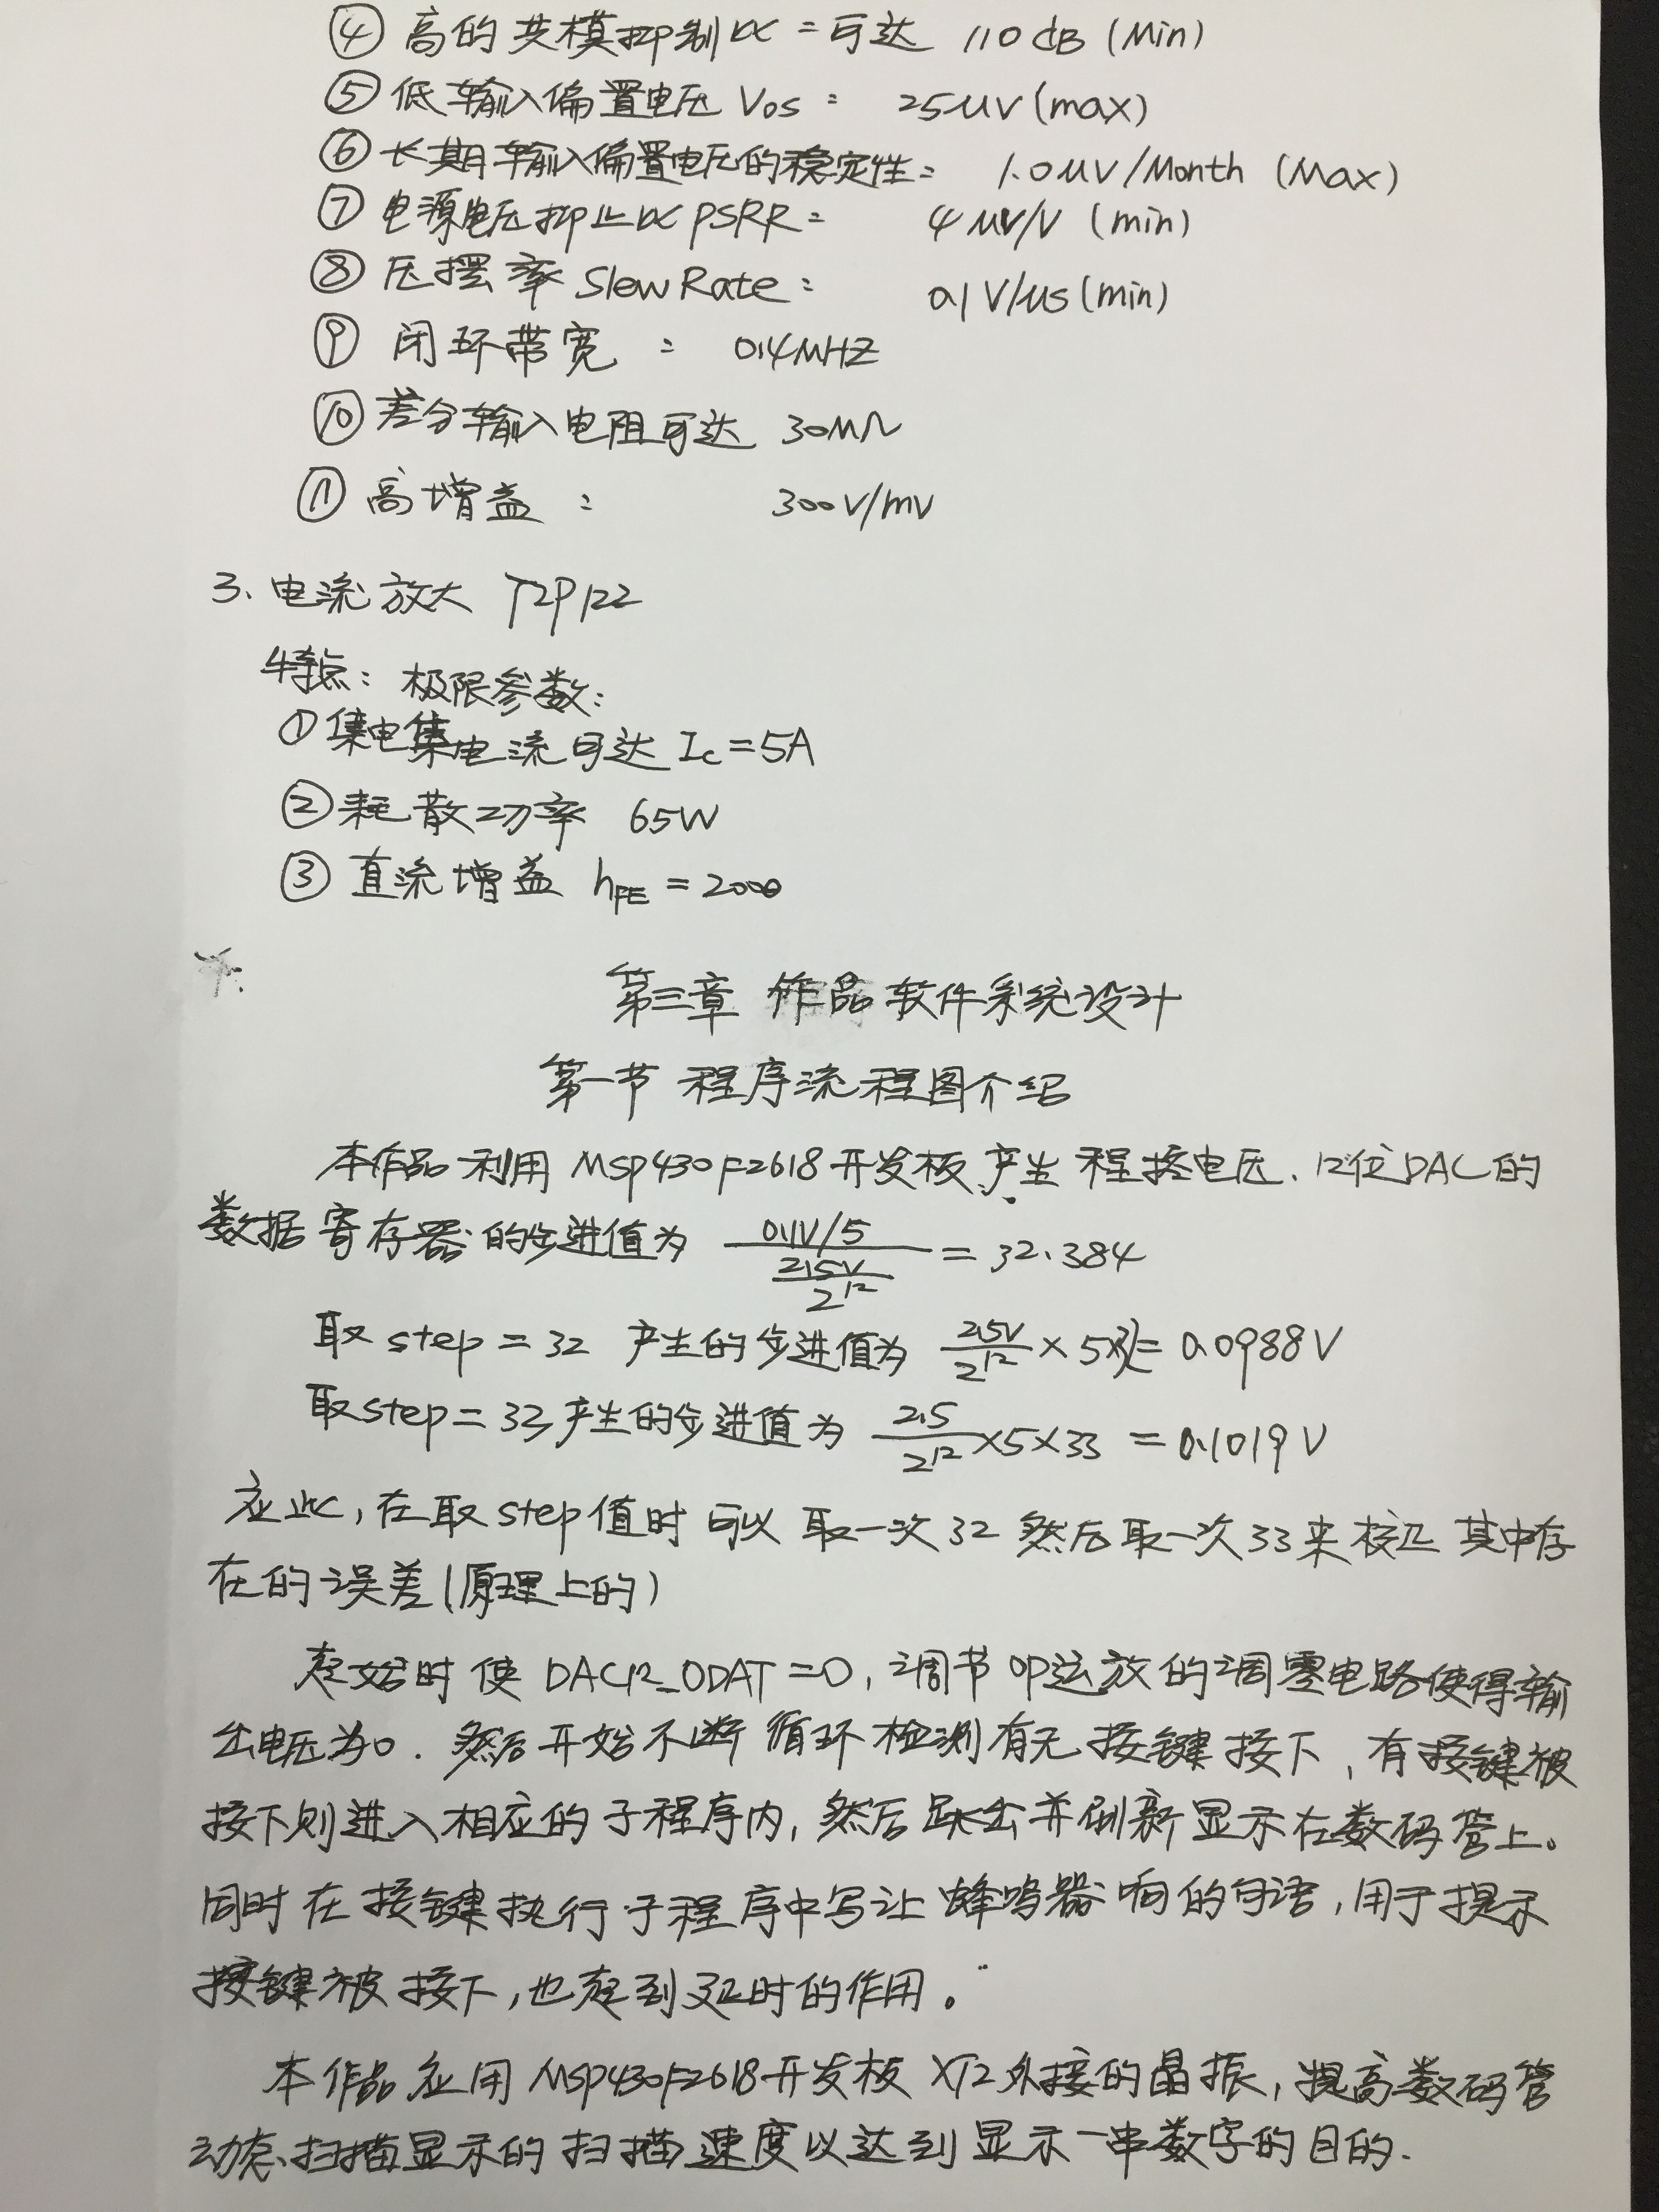 ④ 高的共模抑制比：可达 110dB (Min)
⑤ 低输入偏置电压 Vos： 25μV (max)
⑥ 长期输入偏置电压的稳定性： 1.0μV/Month (Max)
⑦ 电源电压抑止比 PSRR： 4μV/V (min)
⑧ 压摆率 Slew Rate： 0.1V/μs (min)
⑨ 闭环带宽： 0.4MHZ
⑩ 差分输入电阻可达 30MΩ
⑪ 高增益： 300V/mv
3、电流放大 TIP122
特点：极限参数：
① 集电集电流可达 Ic=5A
② 耗散功率 65W
③ 直流增益 hFE = 2000
第三章 作品软件系统设计
第一节 程序流程图介绍
本作品利用MSP430F2618开发板产生程控电压．12位DAC的
数据寄存器的步进值为 (0.1V/5)/(2.5V/2^12) = 32.384
取 step = 32 产生的步进值为 2.5V/2^12 × 5×32 = 0.0988V
取step = 33产生的步进值为 2.5/2^12 ×5×33 = 0.1019V
应此，在取step值时可以取一次32然后取一次33来校正其中存
在的误差(原理上的)
起始时使 DAC12_0DAT=0，调节OP运放的调零电路使得输
出电压为0．然后开始不断循环检测有无按键按下，有按键被
按下则进入相应的子程序内，然后跳出并刷新显示在数码管上。
同时在按键执行子程序中写让蜂鸣器响的句语，用于提示
按键被按下，也起到延时的作用。
本作品应用MSP430F2618开发板XT2外接的晶振，提高数码管
动态扫描显示的扫描速度以达到显示一串数字的目的．